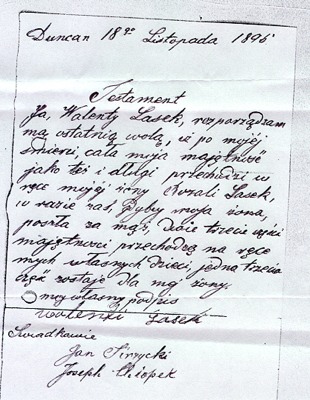 Duncan 18go Listopada 1896
Testament
Ja, Walenty Lasek, rozporządzam
mą ostatnią wolą, iż po mojéj
śmierci, cała moja majętność
jako też i długi przechodzi w
ręce mojéj żony Rozali Lasek,
w razie zaś, gdyby moja żona,
poszła za mąż, dwie trzecie części
majętności przechodzą na ręce
mych własnych dzieci, jedna trzecia
część zostaje dla méj żony.
mój własny podpis
Walenti Łasek
Swiadkowie
Jan
Joseph Chlopek